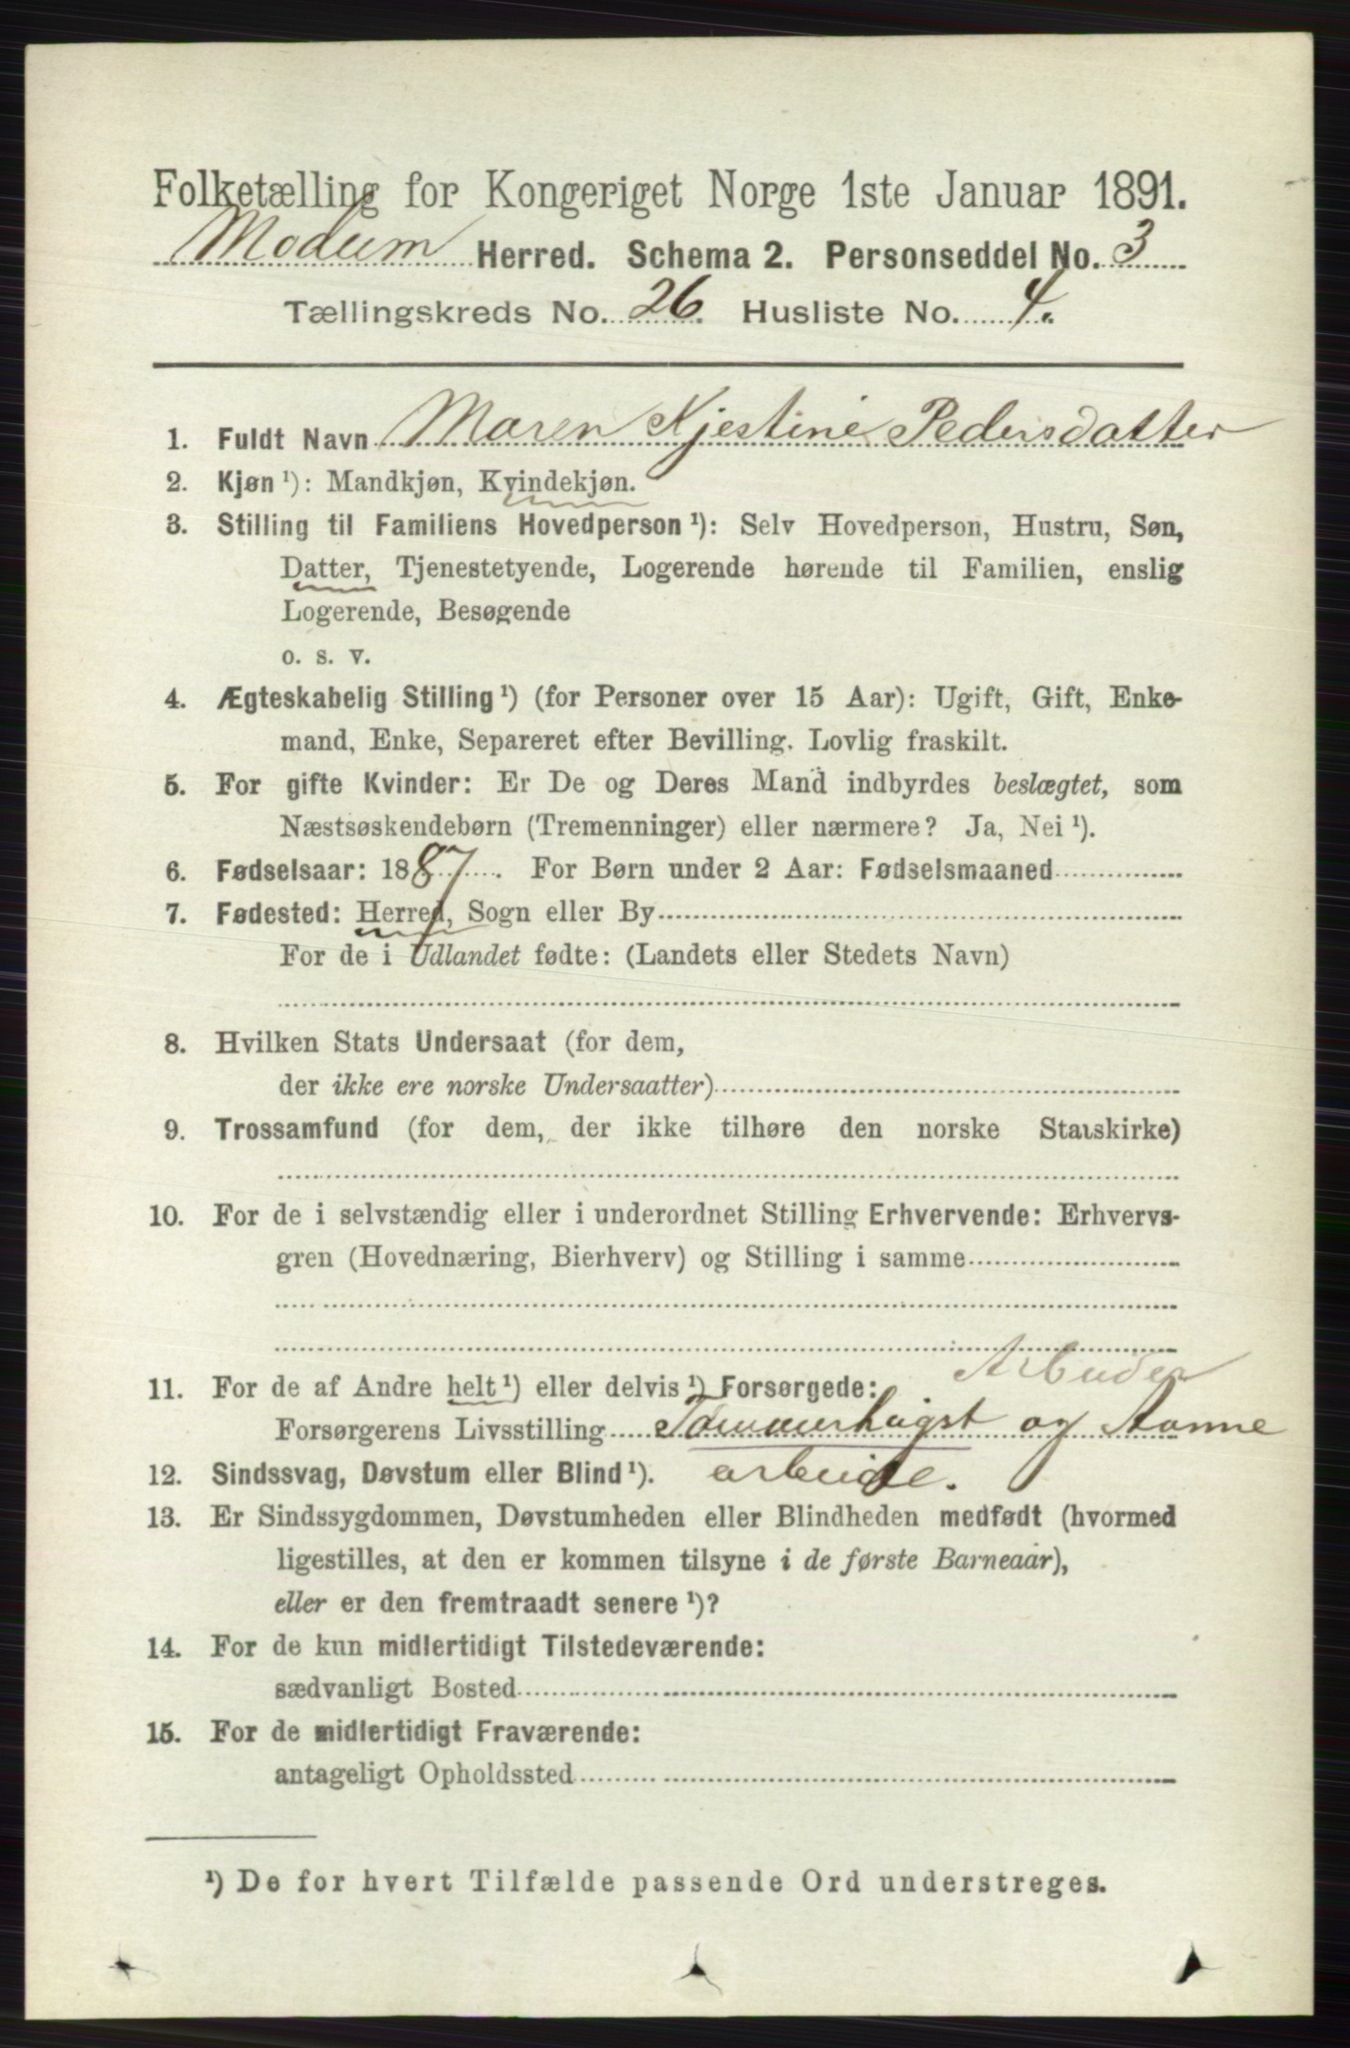 Folketælling for Kongeriget Norge 1ste Januar 1891.
Modum Herred. Schema 2. Personseddel No. 3
Tællingskreds No. 26. Husliste No. 4.
1. Fuldt Navn Maren Kjestine Pedersdatter
2. Kjøn ¹): Mandkjøn, Kvindekjøn.
3. Stilling til Familiens Hovedperson ¹): Selv Hovedperson, Hustru, Søn,
Datter, Tjenestetyende, Logerende hørende til Familien, enslig
Logerende, Besøgende
o. s. v.
4. Ægteskabelig Stilling ¹) (for Personer over 15 Aar): Ugift, Gift, Enke-
mand, Enke, Separeret efter Bevilling. Lovlig fraskilt.
5. For gifte Kvinder: Er De og Deres Mand indbyrdes beslægtet, som
Næstsøskendebørn (Tremenninger) eller nærmere? Ja, Nei ¹).
6. Fødselsaar: 1887. For Børn under 2 Aar: Fødselsmaaned
7. Fødested: Herred, Sogn eller By
For de i Udlandet fødte: (Landets eller Stedets Navn)
8. Hvilken Stats Undersaat (for dem,
der ikke ere norske Undersaatter)
9. Trossamfund (for dem, der ikke tilhøre den norske Statskirke)
10. For de i selvstændig eller i underordnet Stilling Erhvervende: Erhvervs-
gren (Hovednæring, Bierhverv) og Stilling i samme
Arbuder
11. For de af Andre helt ¹) eller delvis ¹) Forsørgede:
Forsørgerens Livsstilling Tømmerhugst og
12. Sindssvag, Døvstum eller Blind ¹). arbeide.
13. Er Sindssygdommen, Døvstumheden eller Blindheden medfødt (hvormed
ligestilles, at den er kommen tilsyne i de første Barneaar),
eller er den fremtraadt senere ¹)?
14. For de kun midlertidigt Tilstedeværende:
sædvanligt Bosted
15. For de midlertidigt Fraværende:
antageligt Opholdssted
¹) De for hvert Tilfælde passende Ord understreges.